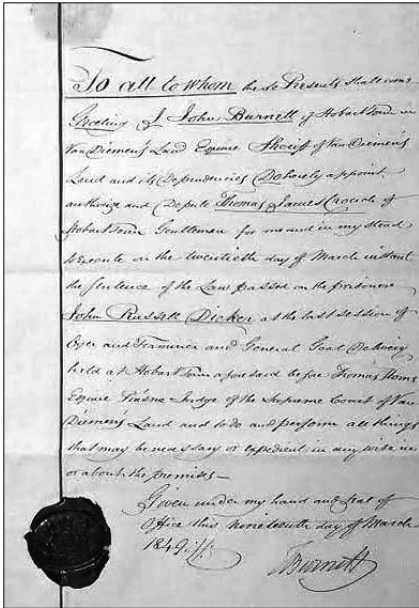 To all to whom these Presents shall come
Greeting I John Burnett of Hobart Town in
Van Diemen's Land Esquire Sheriff of Van Diemen's
Land and its Dependencies Do hereby appoint
authorize and Depute Thomas James Crouch of
Hobart Town Gentleman for me and in my stead
to execute on the twentieth day of March instant
the Sentence of the Law passed on the prisoner
John Russell Dicker at the last session of
Oyer and Terminer and General Gaol Delivery
held at Hobart Town aforesaid before Thomas Horne
Esquire Puisne Judge of the Supreme Court of Van
Diemen's Land and to do and perform all things
that may be necessary or expedient in any wise in
or about the premises —
Given under my hand and Seal of
Office this nineteenth day of March
1849
Burnett